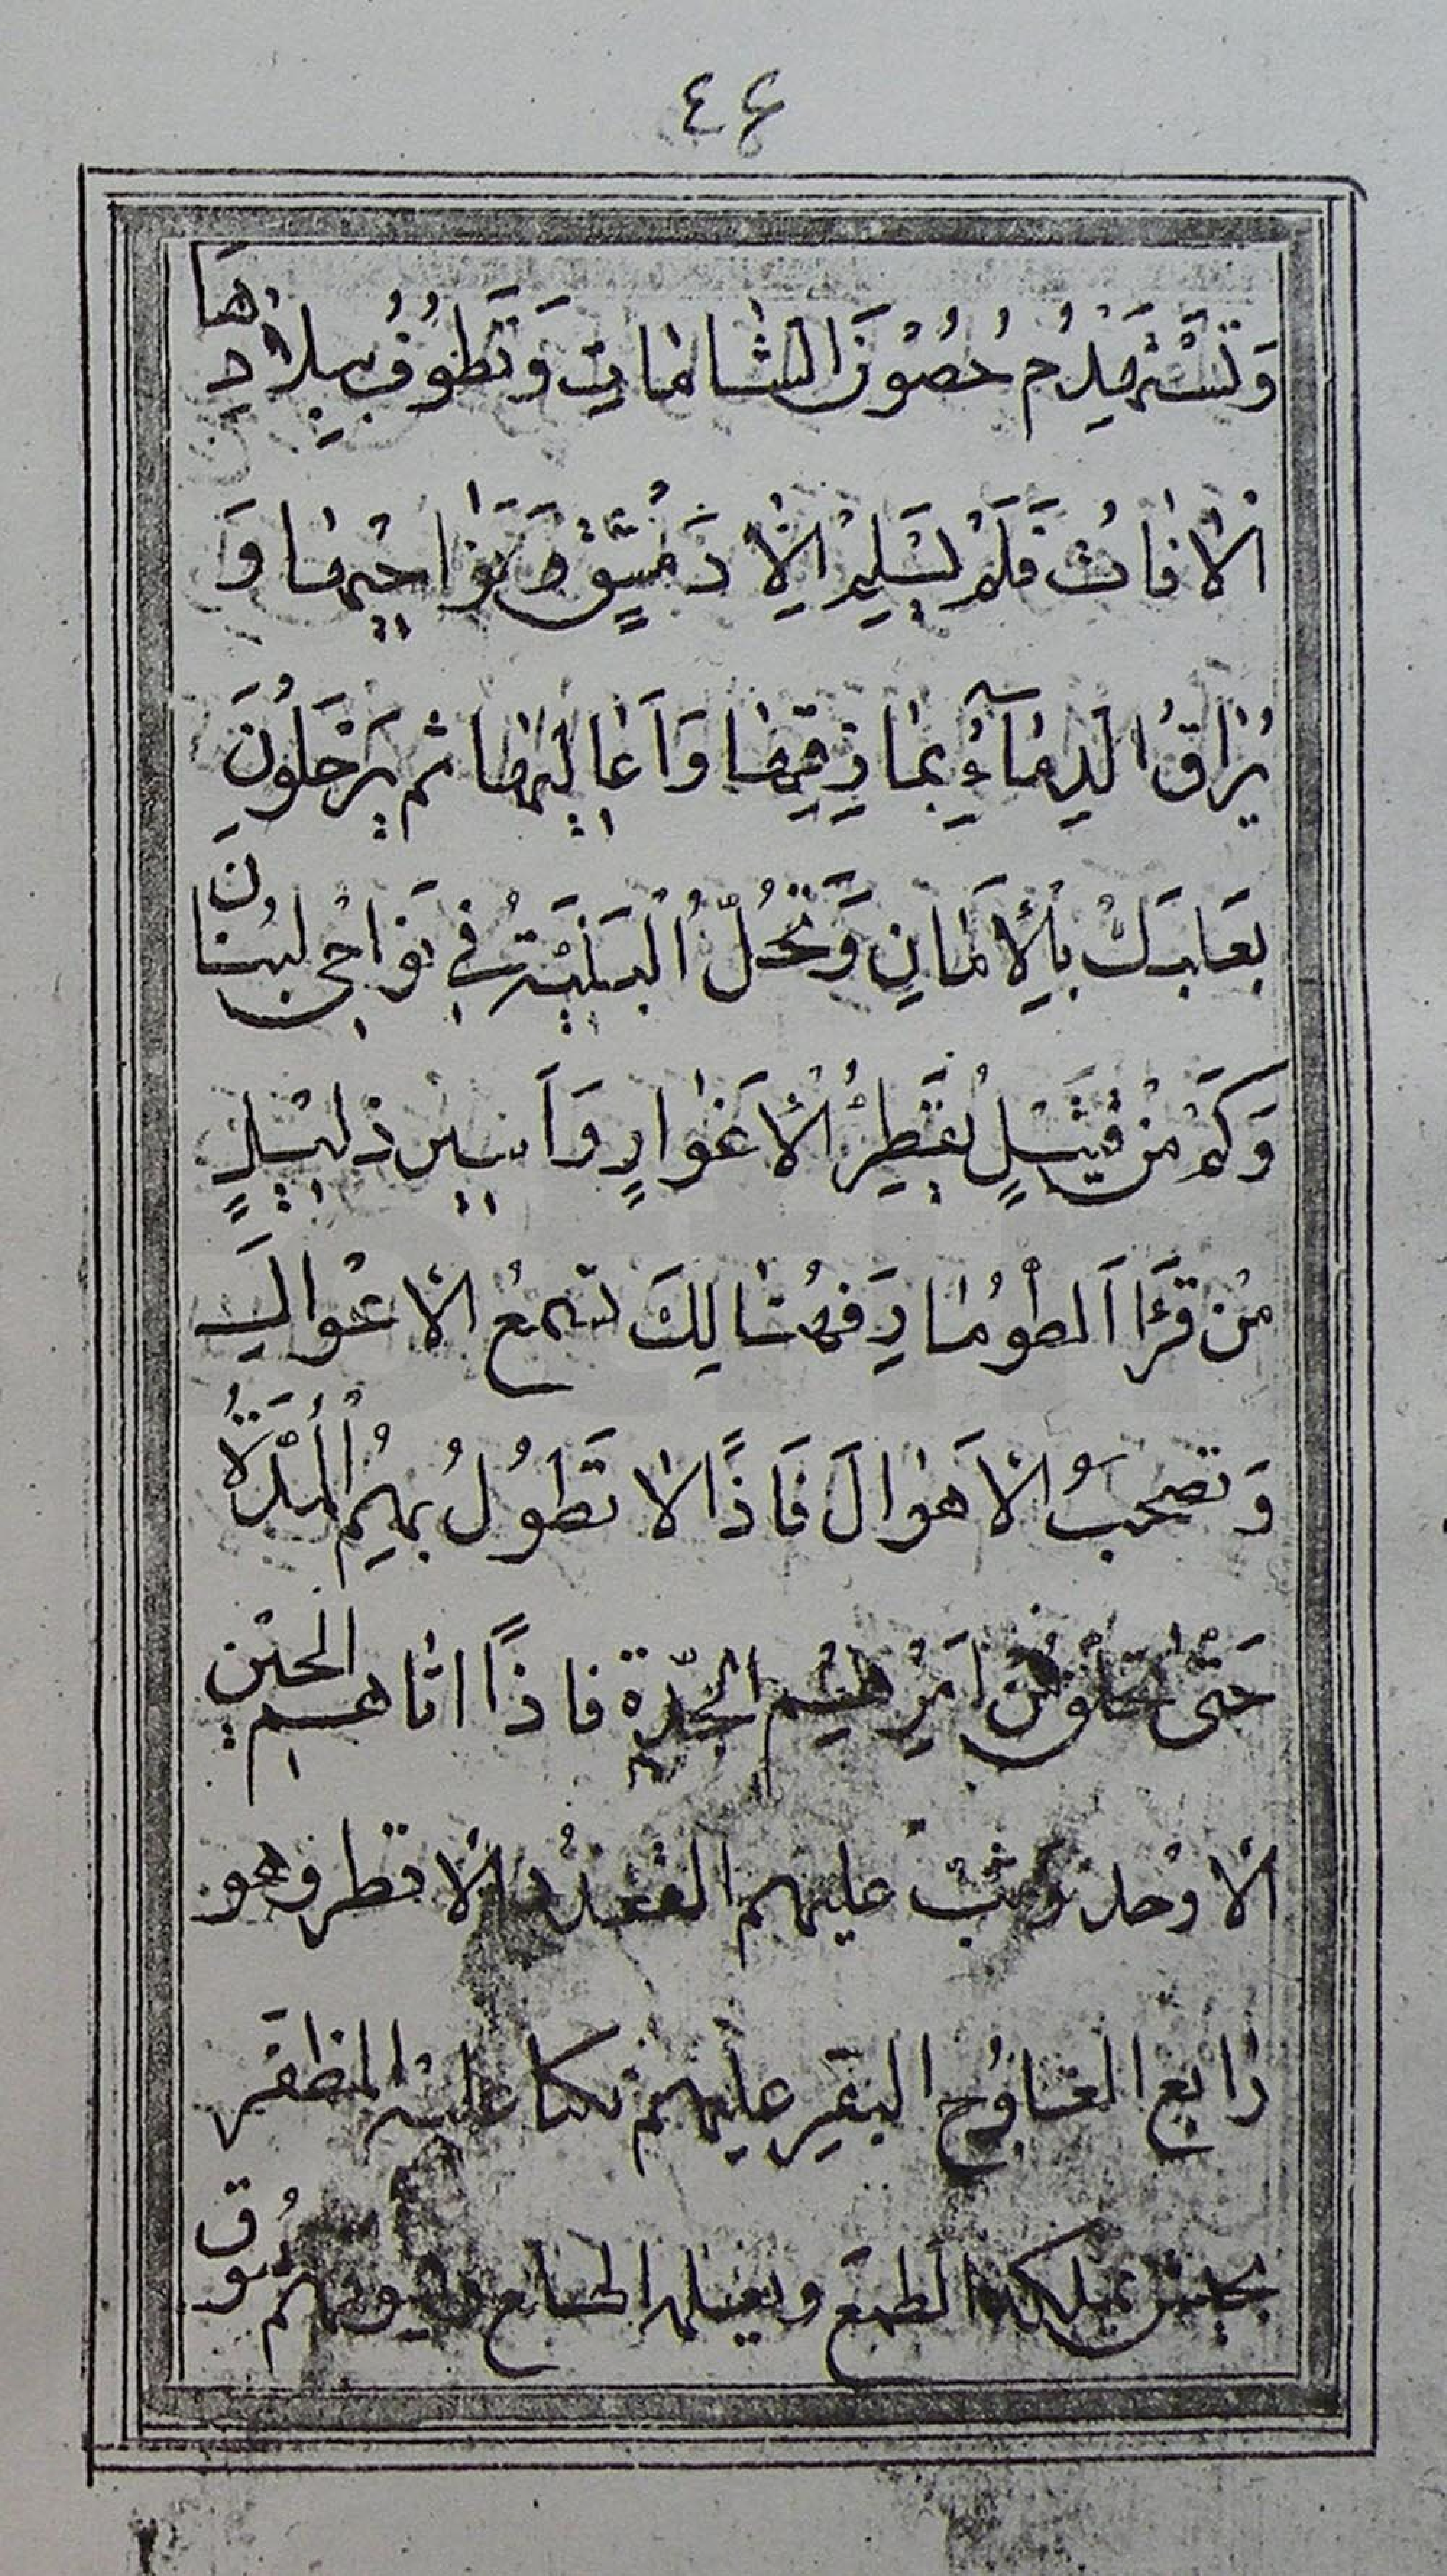 ٤٤
وَتَسْتَهْدِمُ حُصُوْنَ الشَّامَاتِ وَتَطُوْفُ بِبِلَادِهَا
الْاٰفَاتُ فَلَمْ يَسْلِمْ اِلَّا دَمِشْقُ وَنَوَاحِيْهَا وَ
يُرَاقُ الدِّمَآءُ بِمَشَارِقِهَا وَاَعَالِيْهَا ثُمَّ يَدْخُلُوْنَ
بَعْلَبَكَّ بِالْاَمَانِ وَتَحُلُّ الْبَلِيَّةُ فِي نَوَاحِي لُبْنَانَ
وَكَمْ مِنْ قَتِيْلٍ الْاَغْوَارِ وَاَسِيْرٍ ذَلِيْلٍ
مِنْ قُرَا الطُّوْمَارِ فَهُنَالِكَ تَسْمَعُ الْاَعْوَالَ
وَتَصْحَبُ الْاَهْوَالَ فَاِذًا لَا تَطُوْلُ بِهِمُ الْمُدَّةُ
حَتّٰى تَخْلُقَ مِنْ اَمْرِهِمُ الْجِدَّةُ فَاِذَا اَتَاهُمُ الْحِيْنُ
الْاَوْحَدُ وَثَبَ عَلَيْهِمُ الْعَدَدُ الْاَقْطَرُ وَهُوَ
رَابِعُ الْعُلُوْجِ عَلَيْهِمْ عَلَيْهِ الْمُظَفَّرُ
بِجَيْشٍ يَمْلِكُهُ الطَّمَعُ